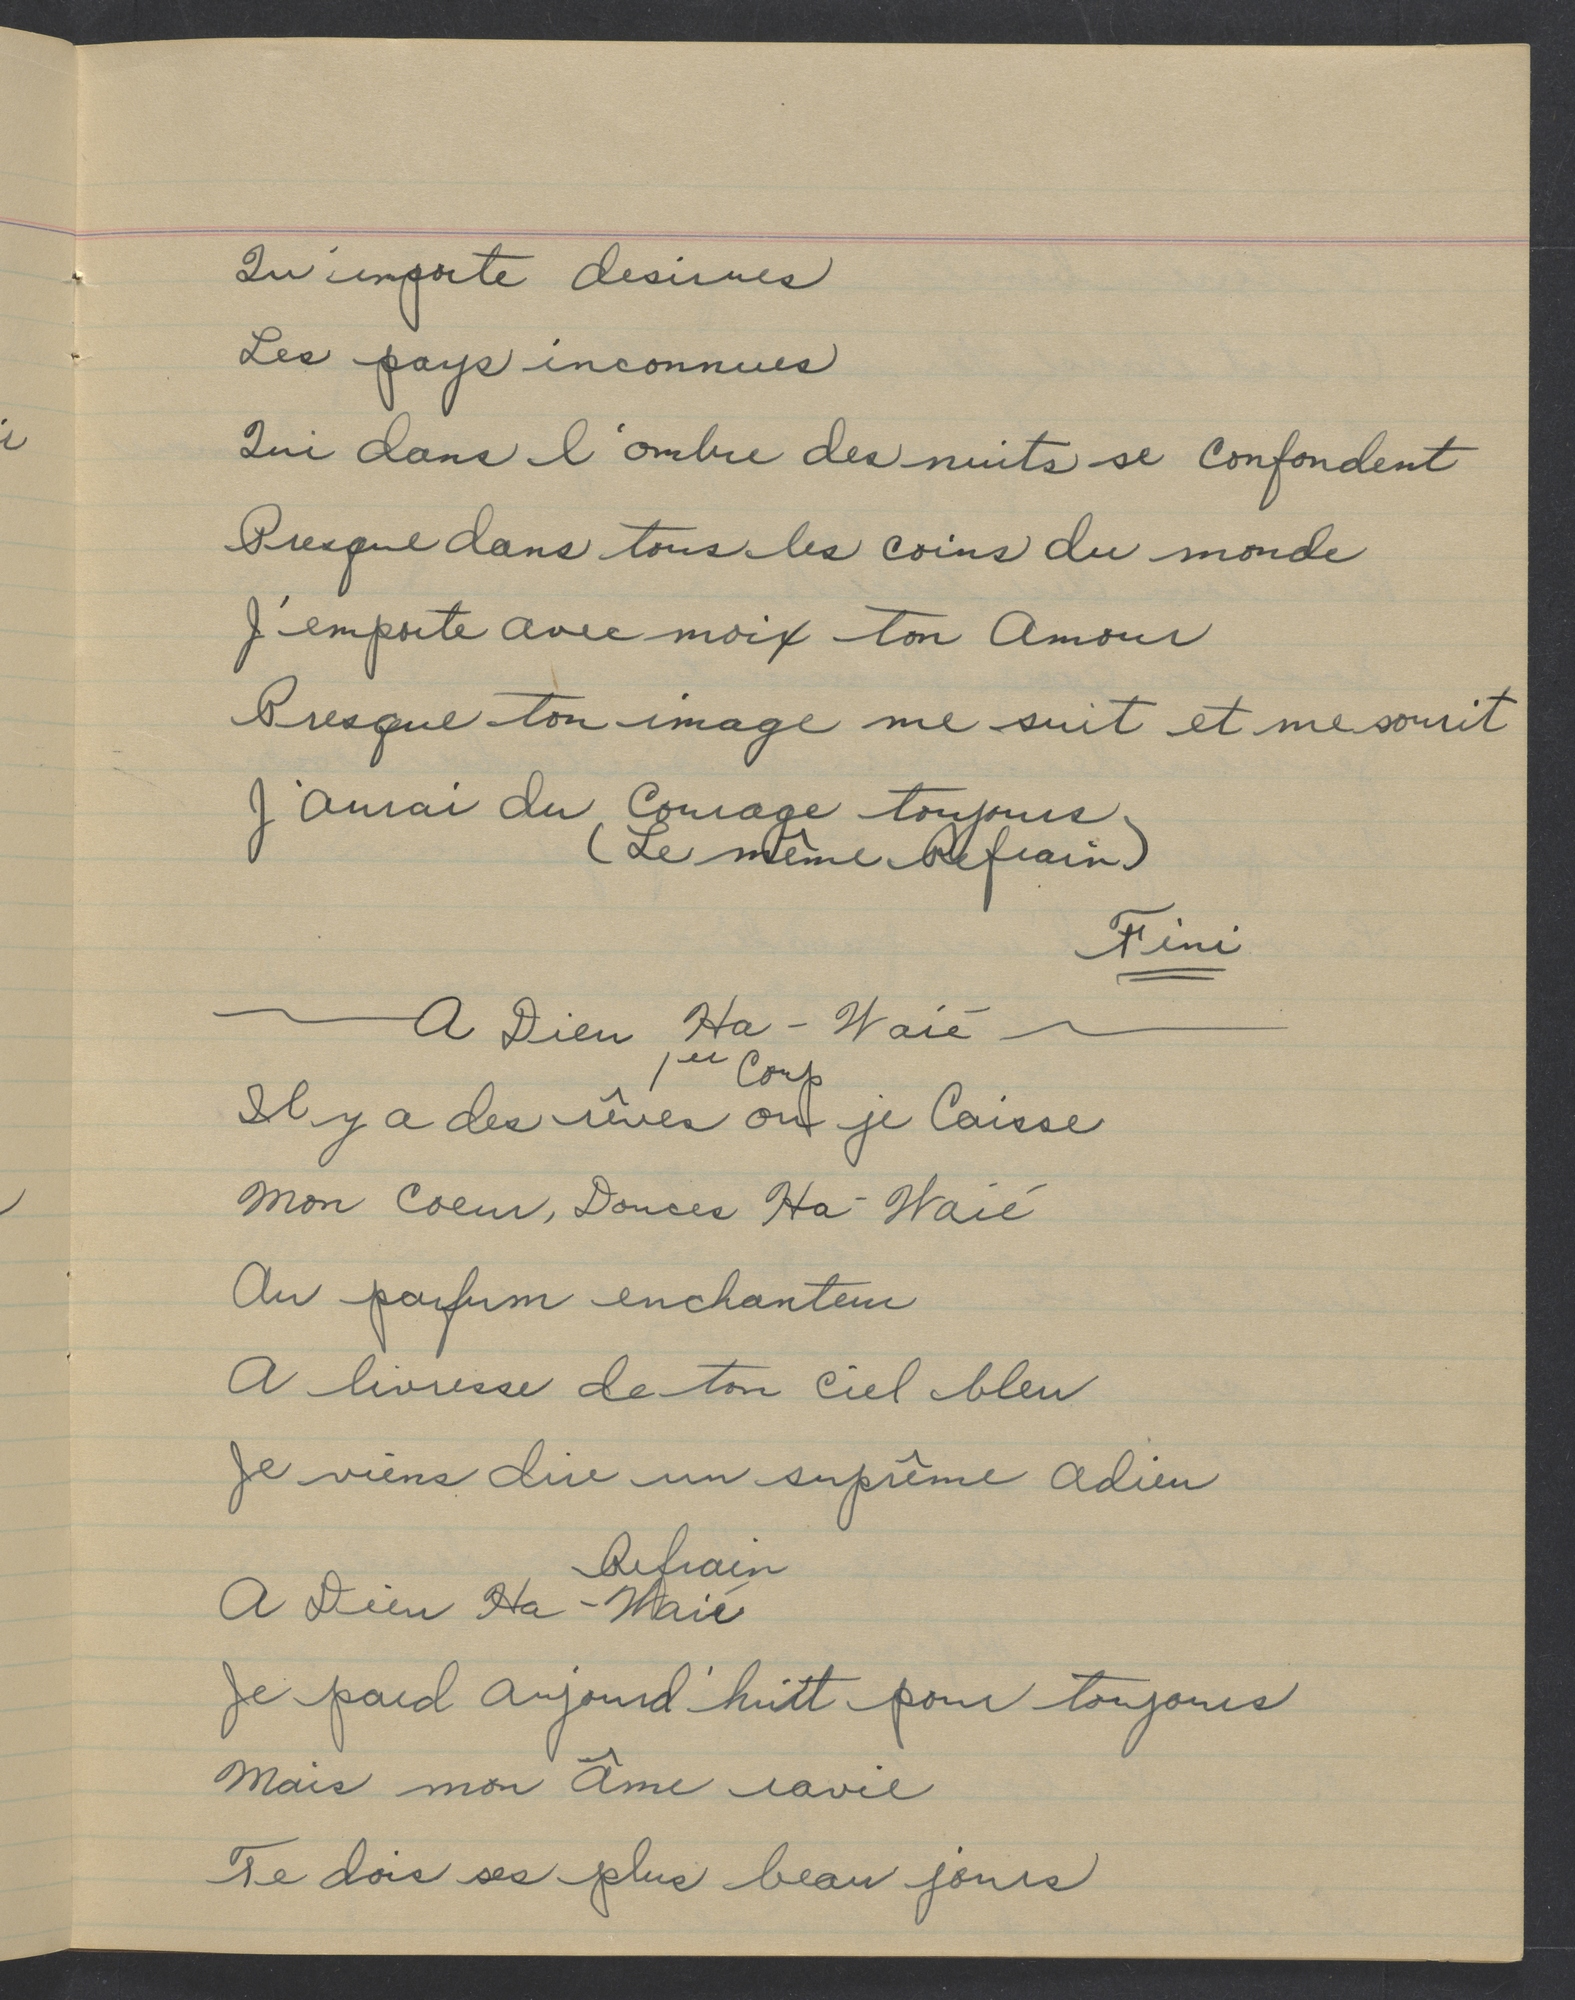 Qu'importe desirues
Les pays inconnues
Qui dans l'ombre des nuits se confondent
Presque dans tous les coins du monde
J'emporte avec moix ton Amour
Presque ton image me suit et me sourit
J'aurai du Courage toujours
(Le même Refrain)
Fini
A Dieu Ha-Waié
1er Coup
Il y a des rêves ou je laisse
Mon Coeur, Douces Ha-Waié
Au parfum enchanteur
A livresse de ton ciel bleu
Je viens dire un suprême adieu
Refrain
A Dieu Ha-Waié
Je pard aujourd'huitt pour toujours
Mais mon Âme ravie
Te dois ses plus beau jours